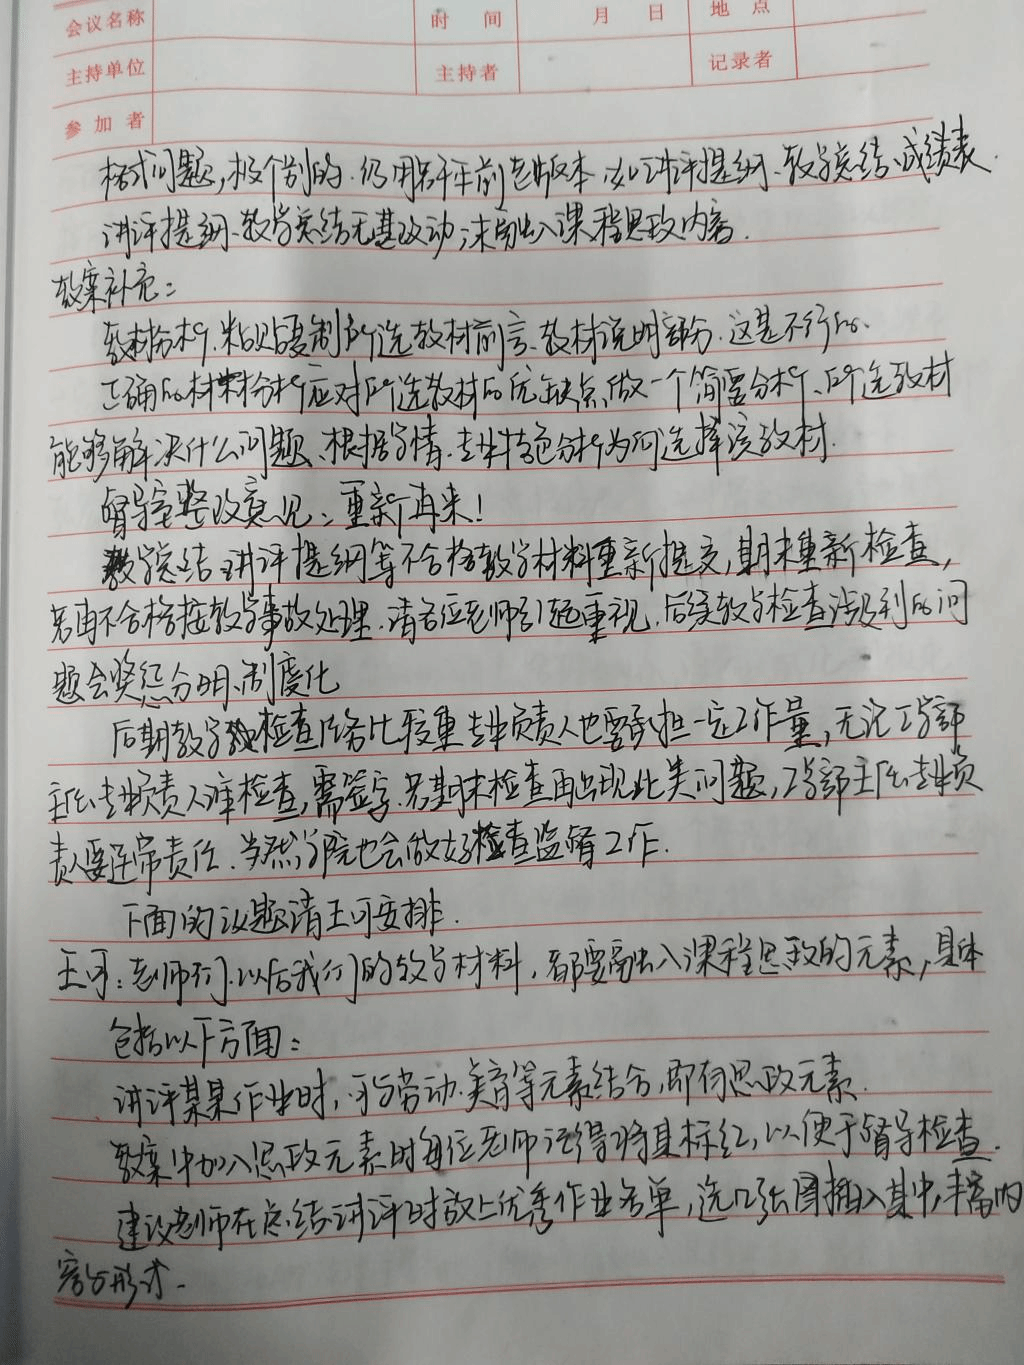 会议名称 时 间 月 日 地 点
主持单位 主持者 记录者
参 加 者
格式问题,极个别的.仍用若干年前老版本.如讲评提纲、教学总结、成绩表.
讲评提纲、教学总结无甚改动,未融入课程思政内容.
教案补充:
教材分析.粘贴复制所选教材前言、教材说明部分.这是不行的.
正确的教材分析应对所选教材的优缺点做一个简要分析、所选教材
能够解决什么问题、根据学情.专业特色分析为何选择该教材.
督导室整改意见:重新再来!
教学总结、讲评提纲等不合格教学材料重新提交,期末重新检查,
若再不合格按教学事故处理.请各位老师引起重视.后续教学检查涉及到的问
题会奖惩分明、制度化
后期教学检查任务比较重专业负责人也要承担一定工作量,无论工学部
主任、专业负责人谁检查,需签字.若期末检查再出现此类问题,工学部主任、专业负
责人要连带责任.当然学院也会做好检查监督工作.
下面的议题请王可安排.
王可:老师们.以后我们的教学材料,都要融入课程思政的元素,具体
包括以下方面:
讲评某某作业时,可与劳动.美育等元素结合,即有思政元素.
教案中加入思政元素时每位老师记得将其标红,以便于督导检查.
建议老师在总结、讲评时放上优秀作业名单,选几张图插入其中,丰富内
容与形式.